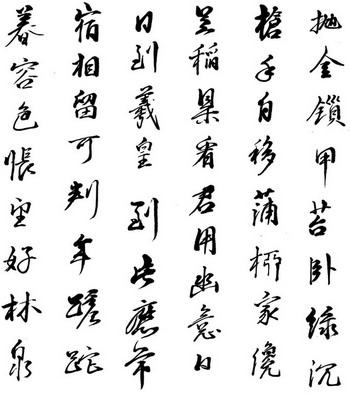 拋金鎖甲苔卧緑沉
槍手自移蒲柳家纔
足稻粱看君用幽意白
日到羲皇 到此應常
宿相留可判年蹉跎
暮容色悵望好林泉